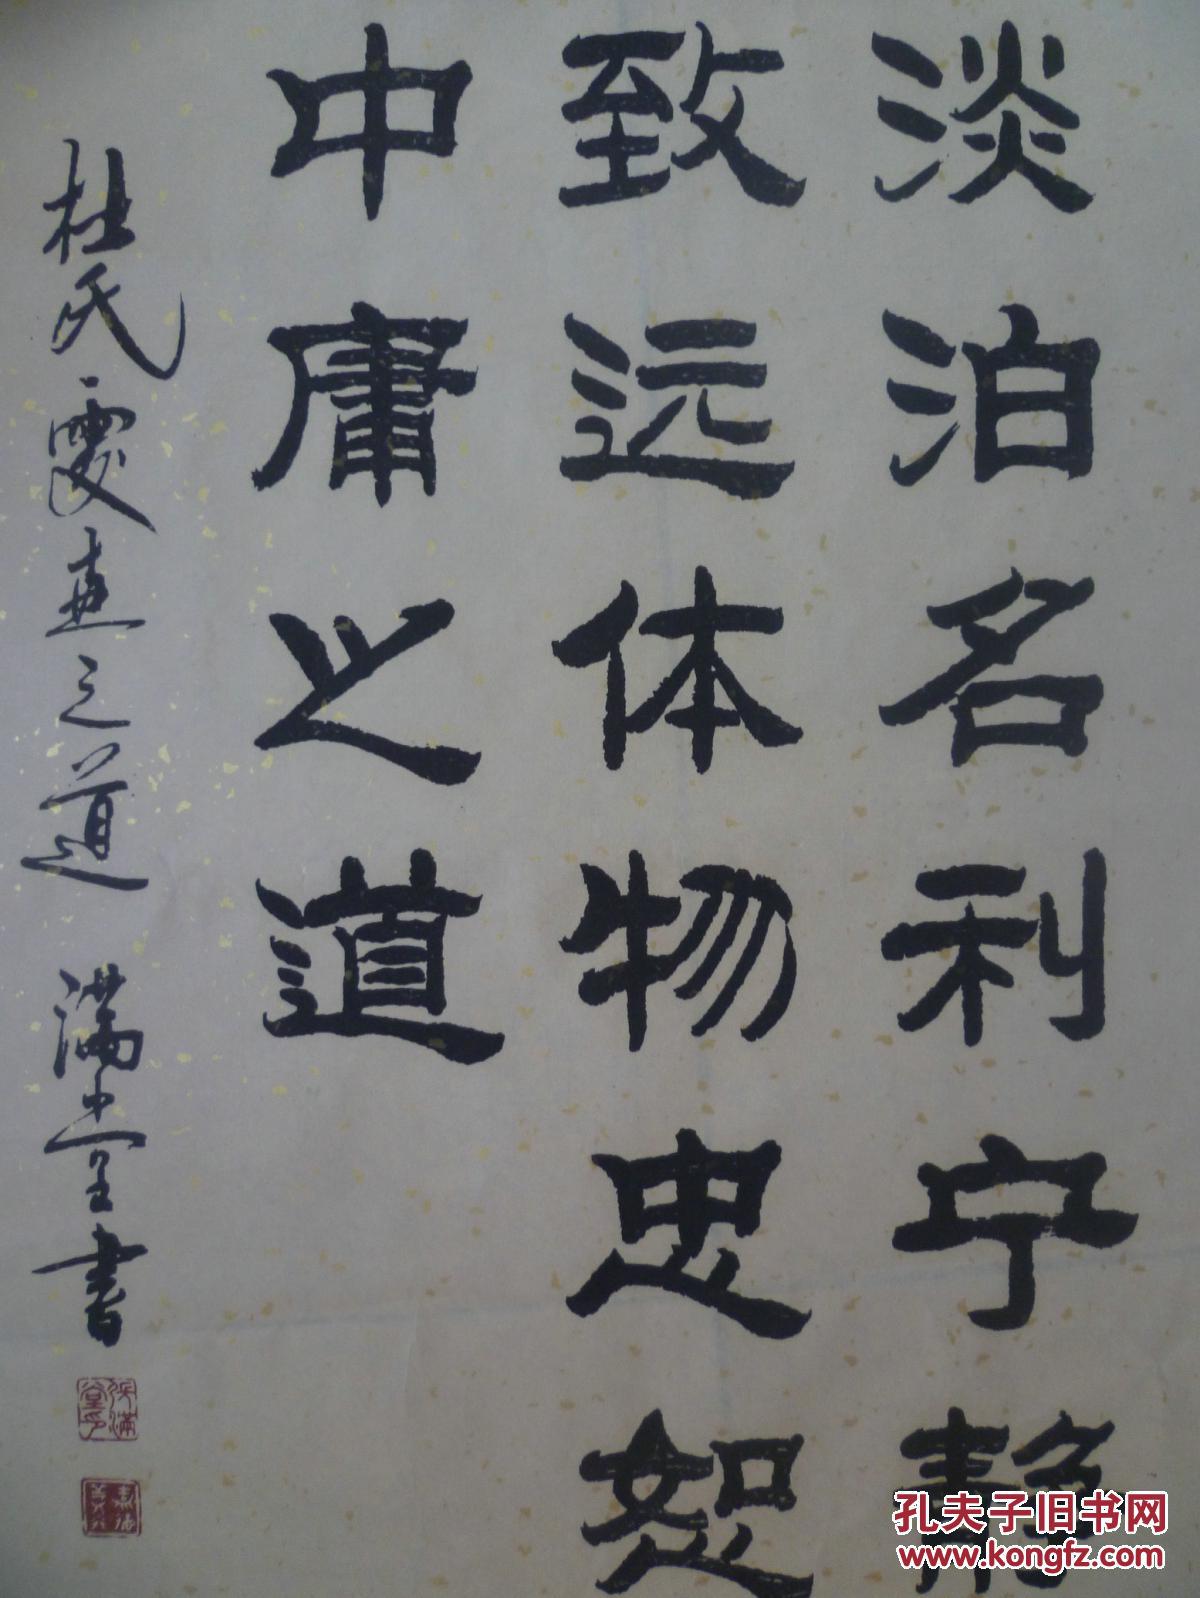 淡泊名利宁静
致远体物忠恕
中庸之道
杜氏
之道 满堂书
孔夫子旧书网
www.kongfz.com